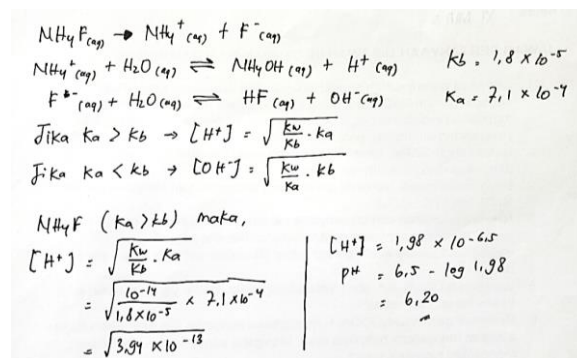 NH4F(aq) → NH4+(aq) + F-(aq)
NH4+(aq) + H2O(aq) ⇌ NH4OH(aq) + H+(aq)
Kb = 1,8 × 10-5
F-(aq) + H2O(aq) ⇌ HF(aq) + OH-(aq)
Ka = 7,1 × 10-4
Jika Ka > Kb → [H+] = √(Kw/Kb . Ka)
Jika Ka < Kb → [OH-] = √(Kw/Ka . Kb)
NH4F (Ka > Kb) maka,
[H+] = √(Kw/Kb . Ka)
= √(10-14/1,8×10-5 × 7,1×10-4)
= √3,94 × 10-13
[H+] = 1,98 × 10-6,5
pH = 6,5 - log 1,98
= 6,20